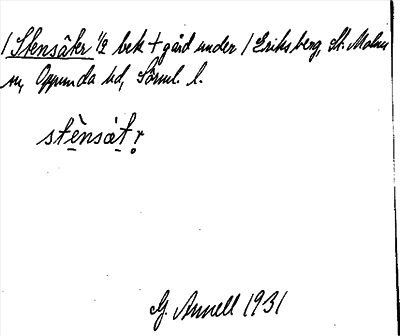 / Stensäkr 1/2 bek + gård under / Eriksberg, St. Malms
sn, Oppunda hd, Sörml. l.
stènsát r̥
G. Annell 1931